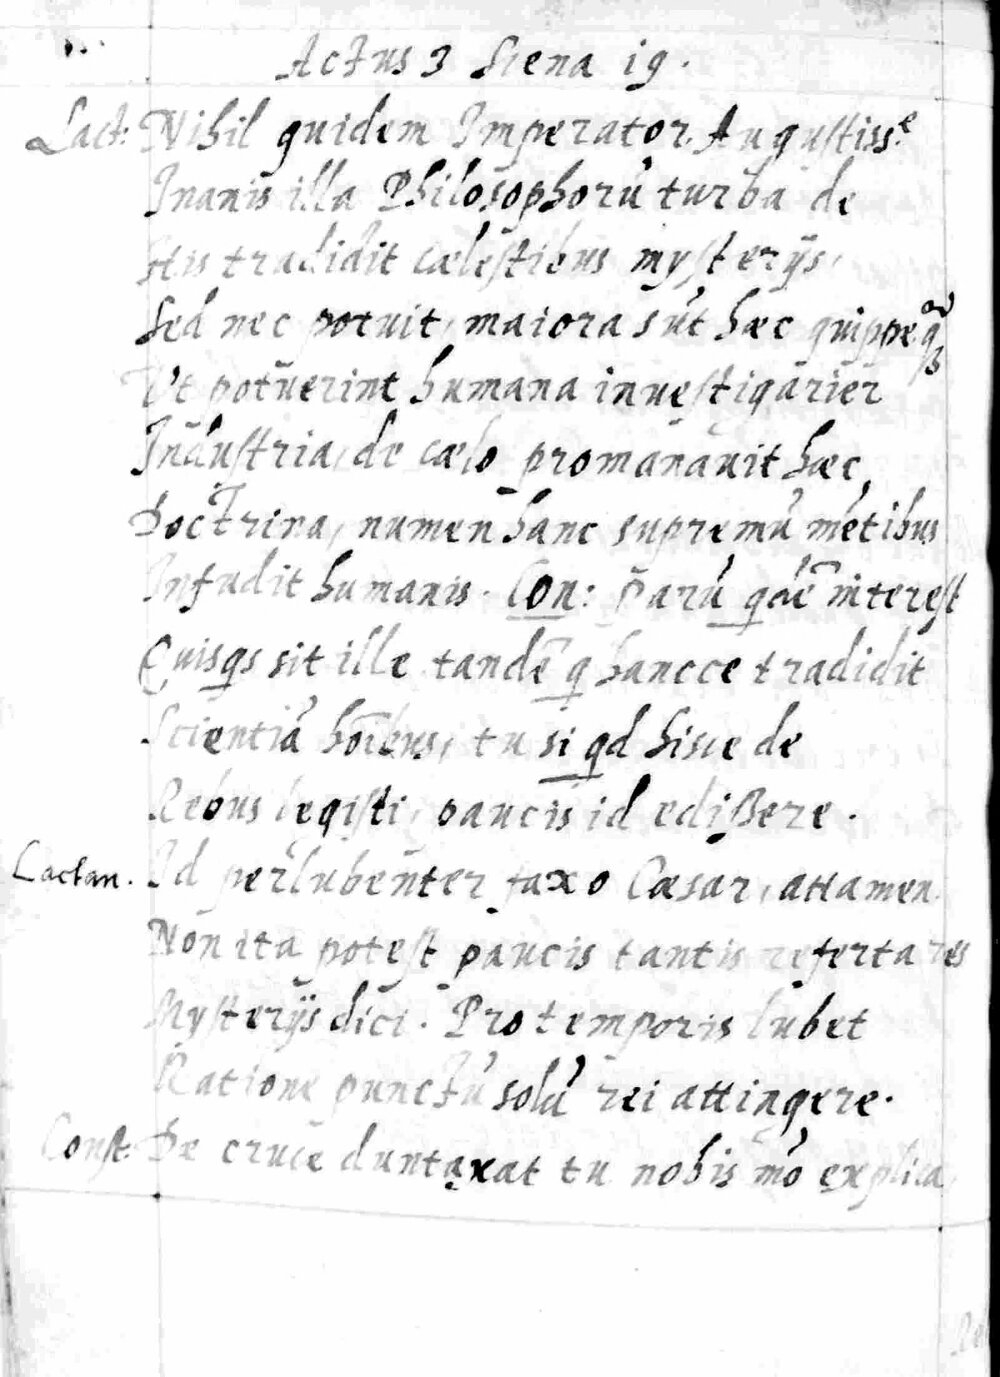 Actus 3 Scena 19.
Lact: Nihil quidem Imperator Augustiss.e
Inanis illa Philosophorũ turba de
His tradidit cælestibus mysterijs,
Sed nec potuit, maiora sũt hæc quippe
Vt potuerint humana inuestigarier
Industria, de cælo promanauit hæc
Doctrina, numen hanc supremũ mẽtibus
Infudit humanis. Con: Parũ qdẽ interest
Quisqs sit ille tandẽ q hancce tradidit
Scientiã hoĩbus, tu si qd hisce de
Rebus legisti, paucis id edißere.
Lactan. Id perlubenter faxo Cæsar, attamen
Non ita potest paucis tantis referta res
Mysterijs dici. Pro temporis lubet
Ratione punctũ solũ rei attingere.
Const: De cruce duntaxat tu nobis mõ explica